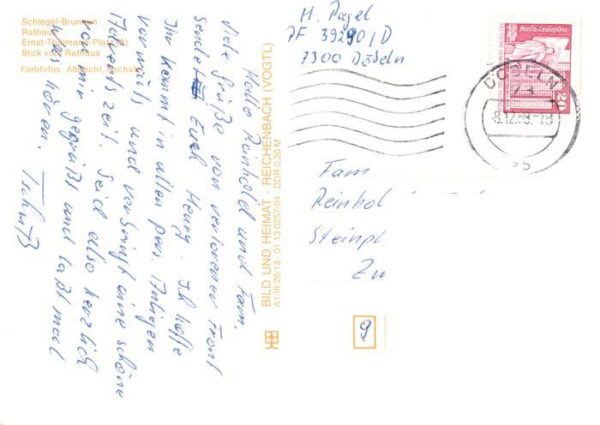 Schlegel-Brunnen
Rathaus
Ernst-Thälmann-Platz
Blick vom Rathaus
Farbfotos: Albrecht,
Hallo Reinhold und Fam.
Viele Grüße von verlorener Front
sendet Euch Henry. Ich hoffe
Ihr kommt in allen
vorwärts und verbringt eine schöne
Adventszeit. Seid also herzlich
von mir gegrüßt und laßt mal
was hören. Tschüß
BILD UND HEIMAT · REICHENBACH (VOGTL)
A1/III/26/13 · 01 13 0257/04 · DDR 0,20 M
H. Pagel
PF 39290/D
7300 Döbeln
Berlin-Leninplatz
DDR
20
DÖBELN
Fam
Reinhol
Steinpl
Zw
9